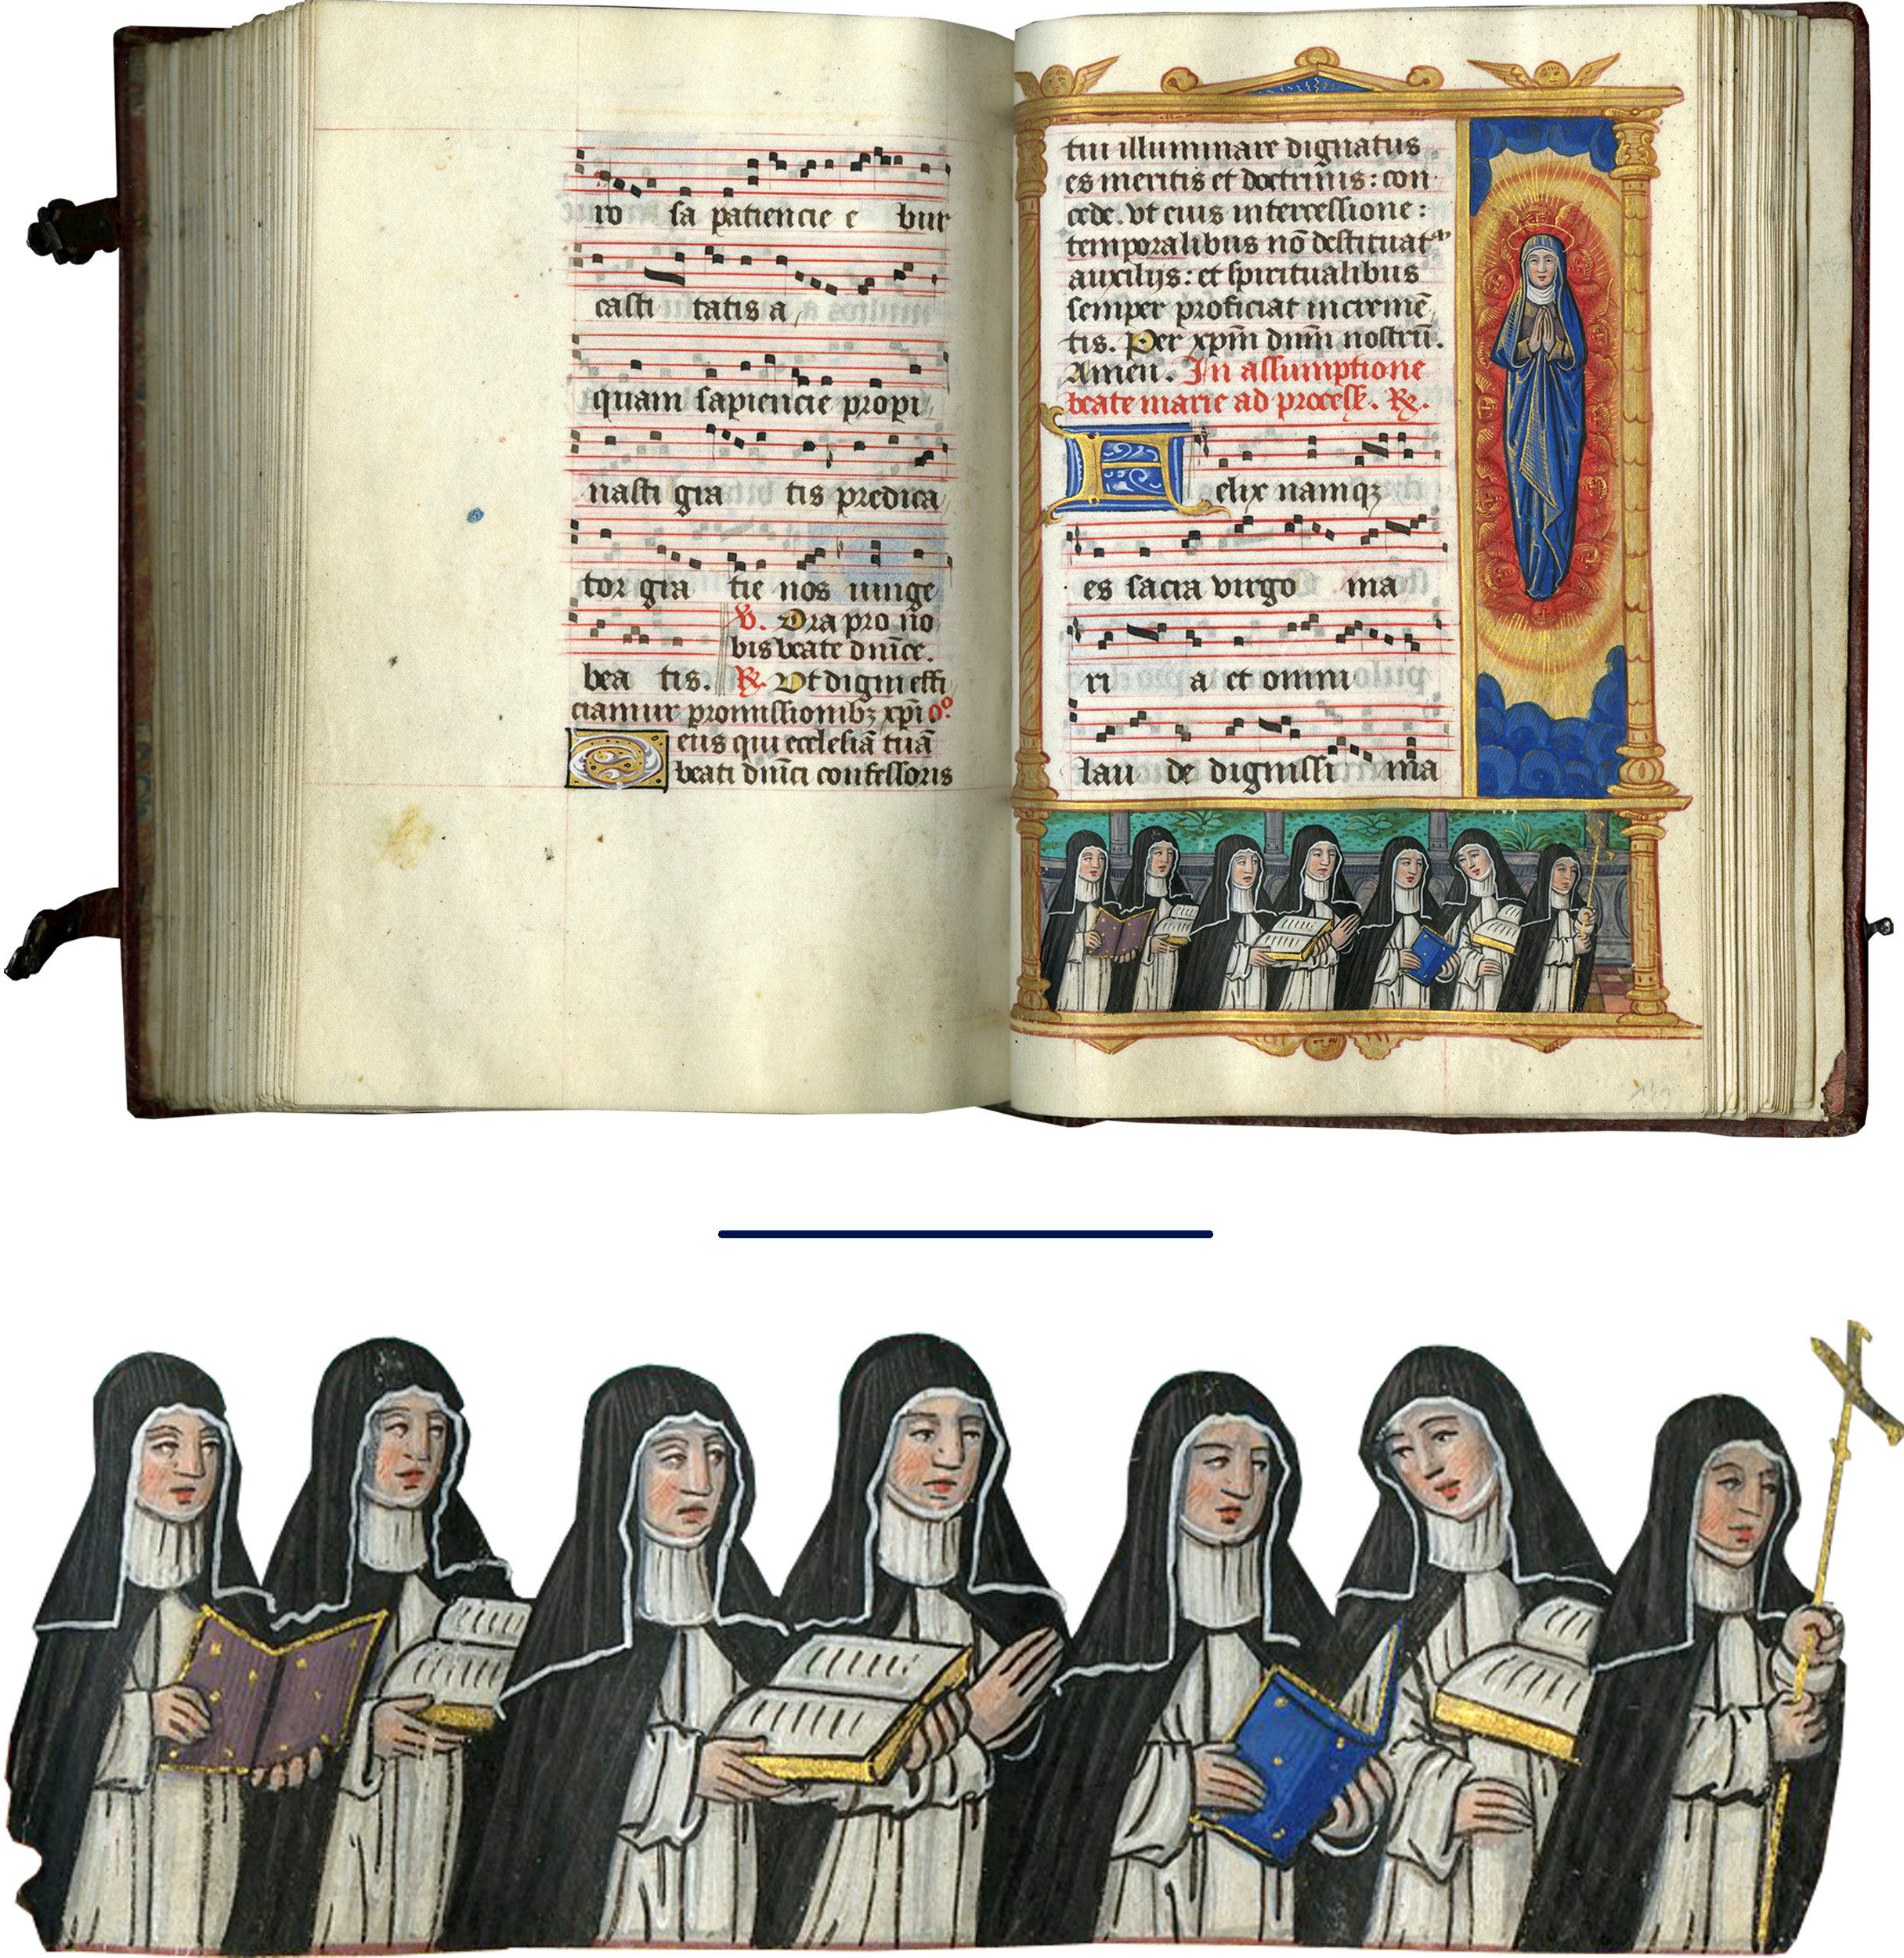 ro sa patiencie e bur
casti tatis a
quam sapiencie propi
nasti gra tis predica
tor gra tie nos iunge
V. Ora pro no
bis beate dnice.
bea tis. R. Vt digni effi
ciamur promissionibz xpi oº
Deus qui ecclesiā tuā
beati dnici confessoris
tui illuminare dignatus
es meritis et doctrinis: con
cede. vt eius intercessione:
temporalibus nō destituat
auxilijs: et spiritualibus
semper proficiat incremē
tis. Per xpm dnm nostrū.
Amen. In assumptione
beate marie ad process. R.
Felix namqz
es sacra virgo ma
ri a et omni
lau de dignissi ma